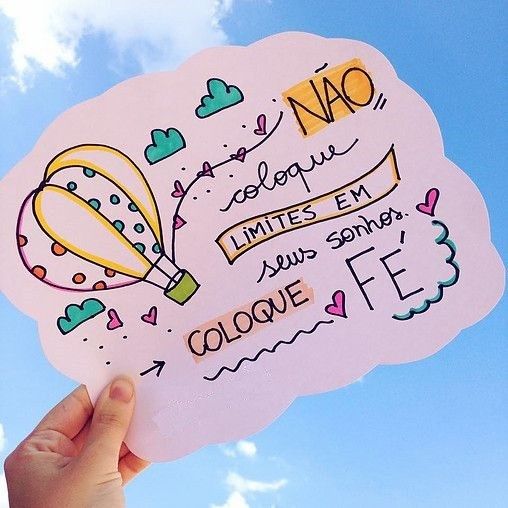 NÃO
coloque
LIMITES EM
seus sonhos.
COLOQUE FÉ